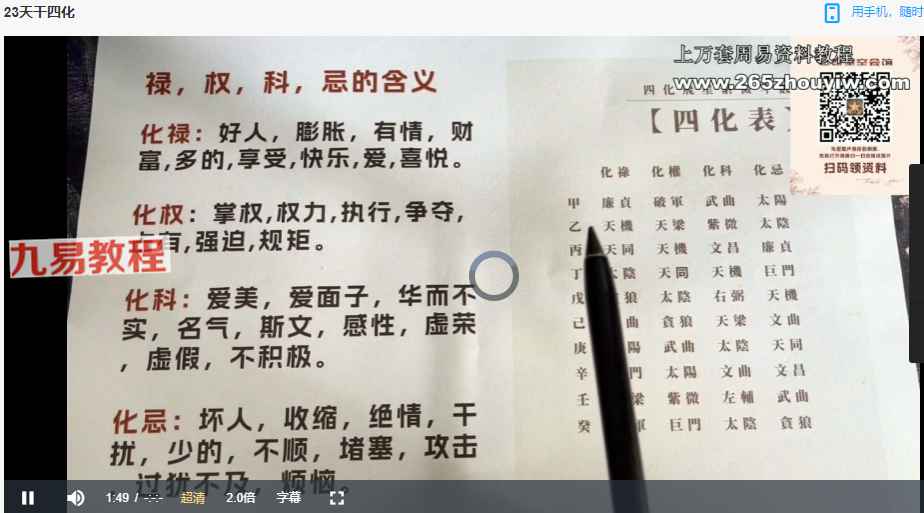 23天干四化
用手机，随时
上万套周易资料教程
www.265zhouyiw.com
扫码领资料
九易教程
禄，权，科，忌的含义
化禄：好人，膨胀，有情，财
富,多的,享受,快乐,爱,喜悦。
化权：掌权,权力,执行,争夺,
有,强迫,规矩。
化科：爱美，爱面子，华而不
实，名气，斯文，感性，虚荣
，虚假，不积极。
化忌：坏人，收缩，绝情，干
扰，少的，不顺，堵塞，攻击
过犹不及，烦恼。
【四化表】
化祿 化權 化科 化忌
甲 廉貞 破軍 武曲 太陽
乙 天機 天梁 紫微 太陰
丙 天同 天機 文昌 廉貞
丁 太陰 天同 天機 巨門
戊 狼 太陰 右弼 天機
己 曲 貪狼 天梁 文曲
庚 陽 武曲 太陰 天同
辛 門 太陽 文曲 文昌
壬 梁 紫微 左輔 武曲
癸 軍 巨門 太陰 貪狼
1:49 / -:-:-
超清
2.0倍
字幕